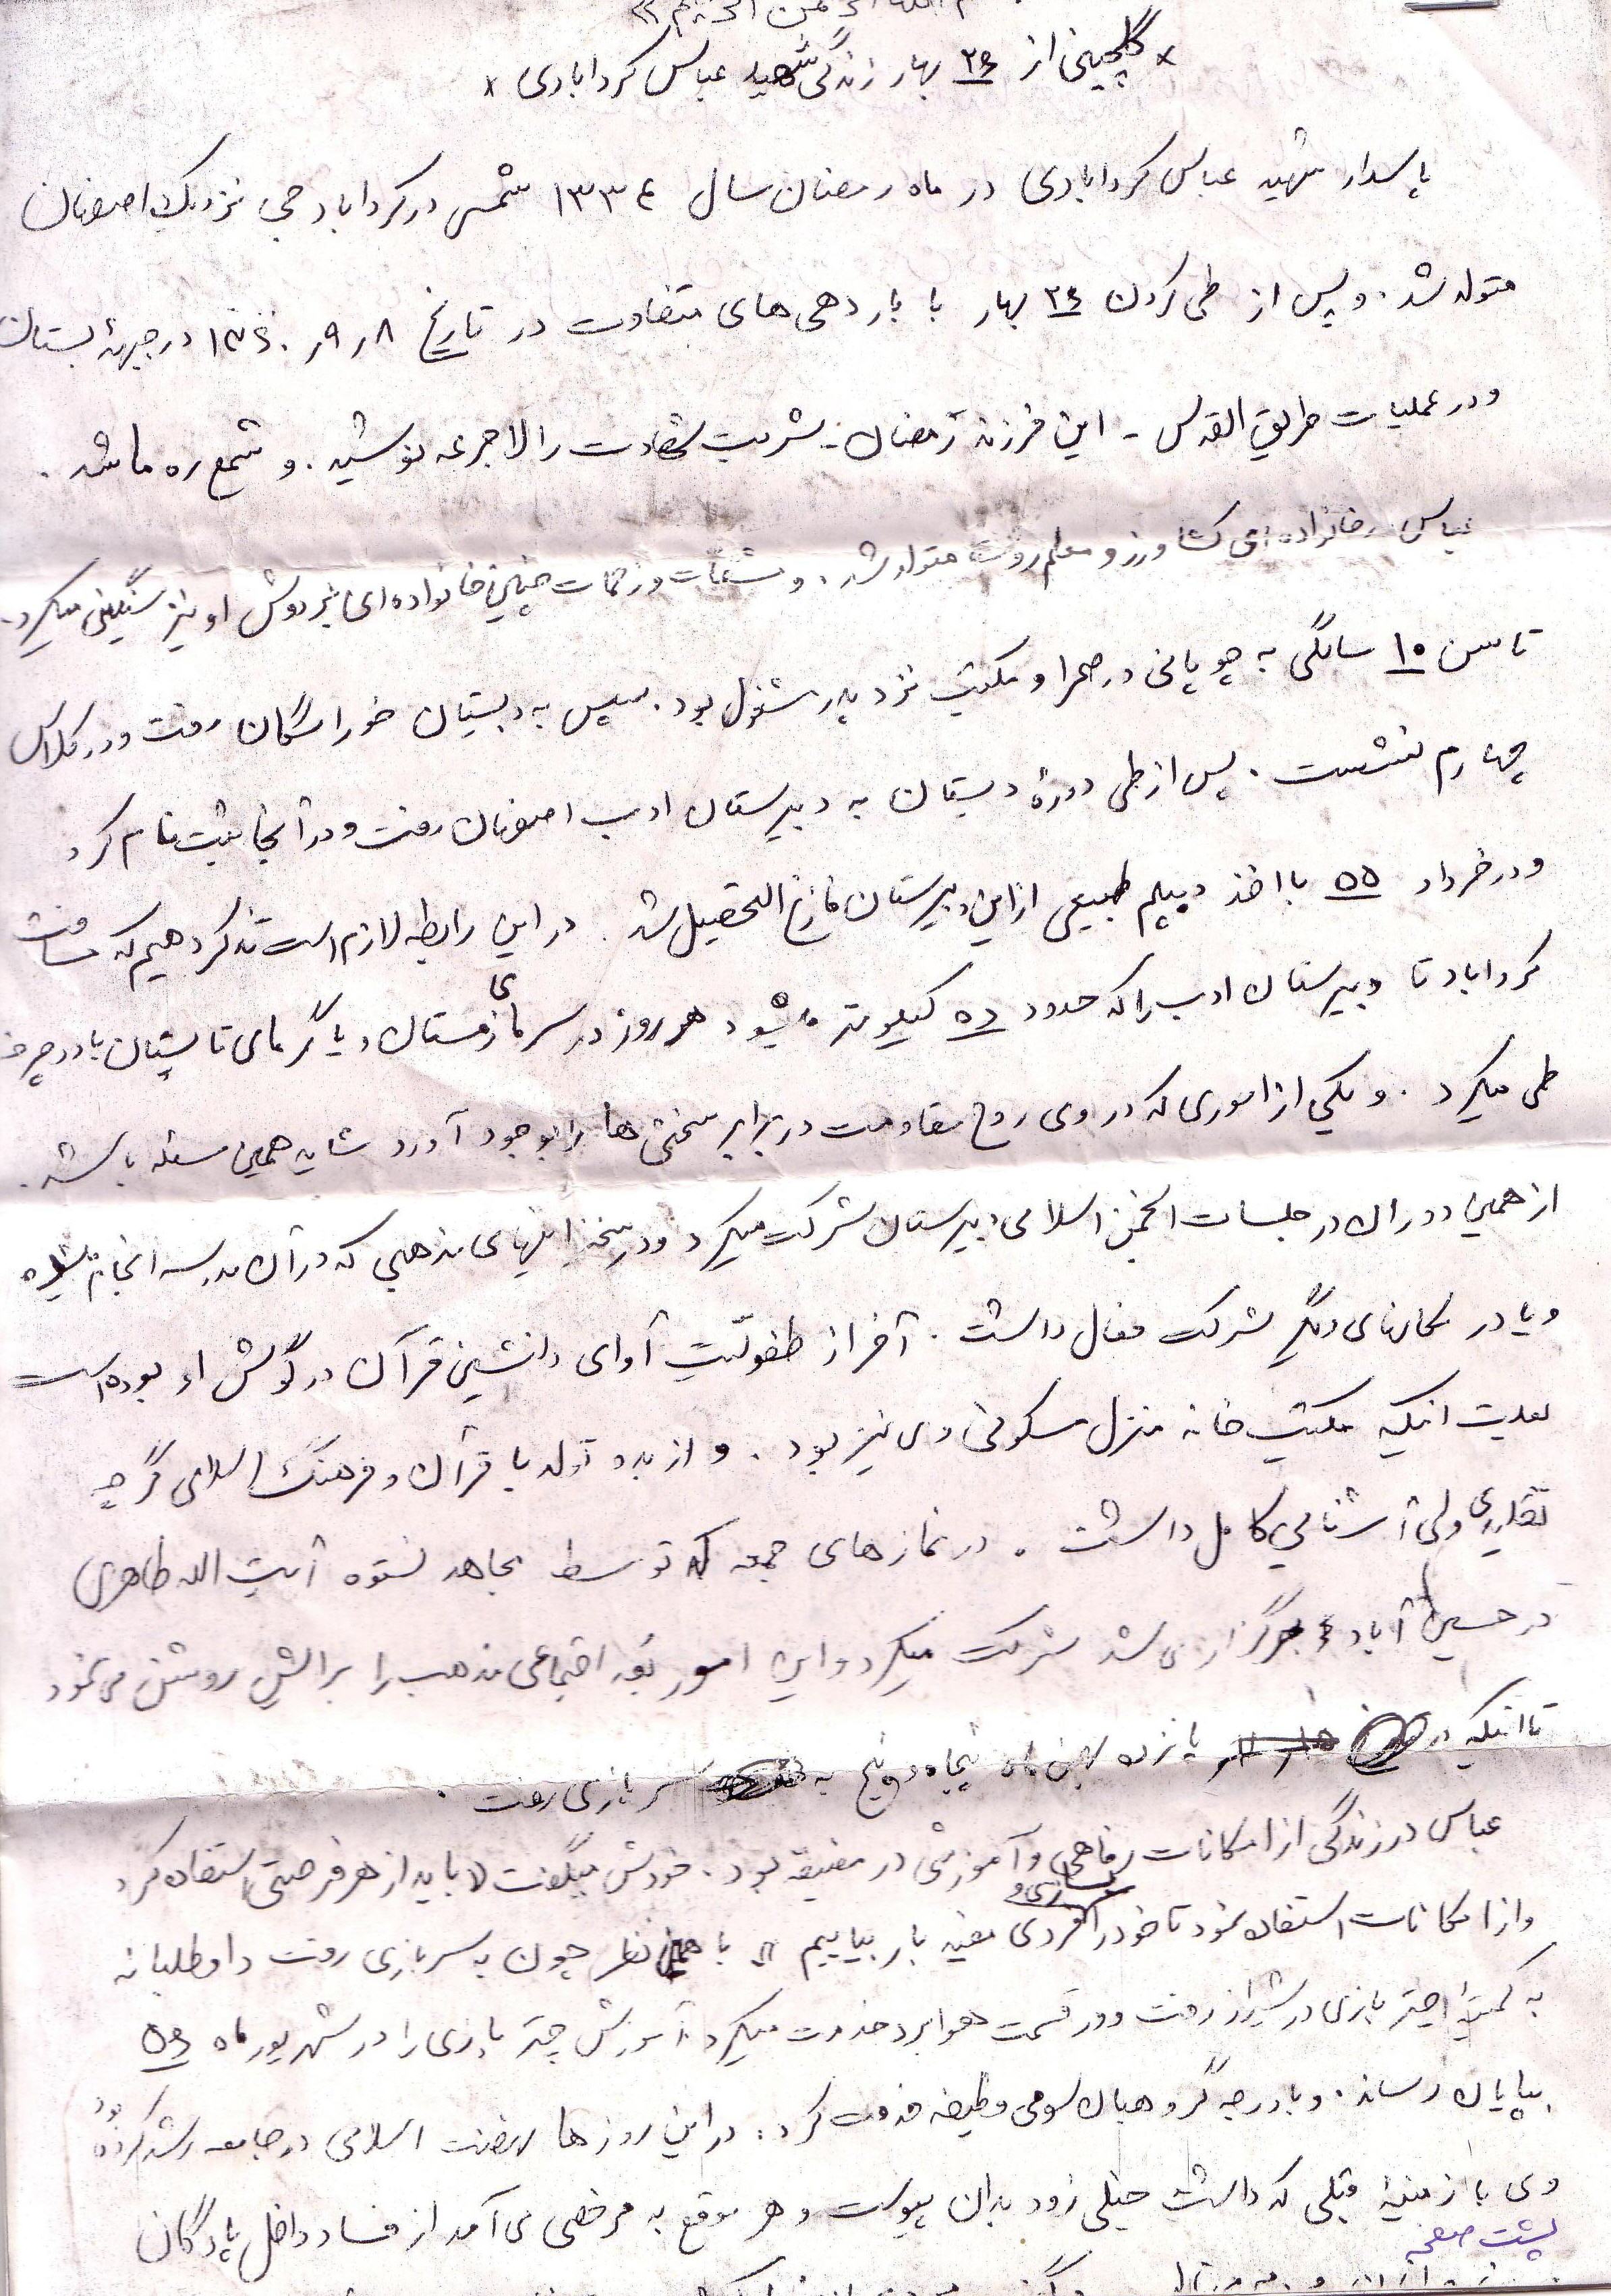 « بسم الله الرحمن الرحیم »
× گلچینی از ۲۶ بهار زندگی شهید عباس کردابادی ×
پاسدار شهید عباس کردابادی در ماه رمضان سال ۱۳۳۴ شمسی در کرداباد جی نزدیک اصفهان
متولد شد. و پس از طی کردن ۲۶ بهار با بار دهی‌های متفاوت در تاریخ ۸ر۹ر۱۳۶۰ در جبههٔ بستان
و در عملیات طریق القدس - این فرزند رمضان - شربت شهادت را لاجرعه نوشید. و شمع ره ما شد.
عباس در خانواده‌ای کشاورز و معلم روستا متولد شد. و مشقات و زحمات چنین خانواده‌ای بر دوش او نیز سنگینی میکرد.
تا سن ۱۰ سالگی به چوپانی در صحرا و مکتب نزد پدر مشغول بود. سپس به دبستان خوراسگان رفت و در کلاس
چهارم نشست. پس از طی دورهٔ دبستان به دبیرستان ادب اصفهان رفت و در آنجا ثبت نام کرد
و در خرداد ۵۵ با اخذ دیپلم طبیعی از این دبیرستان فارغ التحصیل شد. در این رابطه لازم است تذکر دهیم که مسافت
کرداباد تا دبیرستان ادب را که حدود ده کیلومتر میشود هر روز در سرمای زمستان و یا گرمای تابستان با دوچرخه
طی میکرد. و یکی از اموری که در وی روح مقاومت در برابر سختی‌ها را بوجود آورد شاید همین مسئله باشد.
از همین دوران در جلسات انجمن اسلامی دبیرستان شرکت میکرد و در سخنرانیهای مذهبی که در آن مدرسه انجام میشده
و یا در مکانهای دیگر شرکت فعال داشت. آخر از طفولیّت آوای دلنشین قرآن در گوش او بوده است
بعلت اینکه مکتب خانه منزل مسکونی وی نیز بود. و از بدو تولد با قرآن و فرهنگ اسلامی گرچه
تقلیدی ولی آشنایی کامل داشت. در نمازهای جمعه که توسط مجاهد نستوه آیت الله طاهری
در حسین آباد برگزار می شد شرکت میکرد و این امور بُعد اجتماعی مذهب را برایش روشن می نمود
تا اینکه در پانزده بهمن ماه پنجاه و پنج به سربازی رفت.
عباس در زندگی از امکانات رفاهی و آموزشی در مضیقه بود. خودش میگفت « باید از هر فرصتی استفاده کرد
و از امکانات استفاده نمود تا خود را فردی مفید بار بیاییم » با همین نظر چون به سربازی رفت داوطلبانه
به چتر بازی در شیراز رفت و در قسمت هوابرد خدمت میکرد آموزش چتر بازی را در شهریور ماه ۵۶
بپایان رساند. و با درجه گروهبان سومی وظیفه خدمت کرد. در این روزها نهضت اسلامی در جامعه رشد کرده بود
وی با زمینهٔ قبلی که داشت خیلی زود بدان پیوست و هر موقع به مرخصی می آمد از فساد داخل پادگان
پشت صفحه